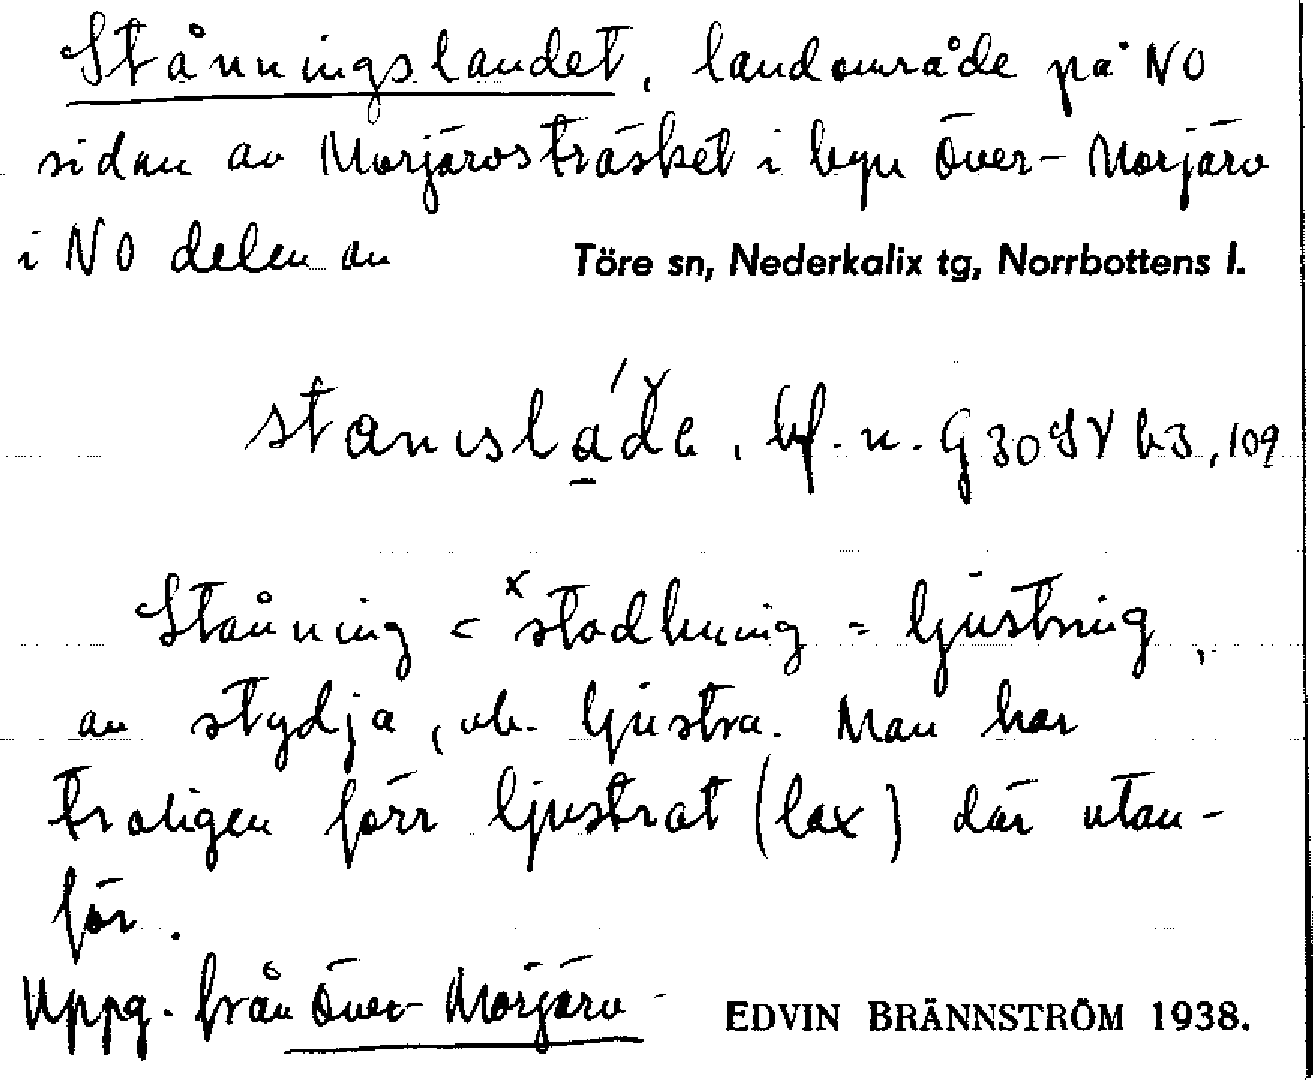 Stånningslandet, landområde på NO
sidan av Morjärvsträsket i byn Över-Morjärv
i NO delen av Töre sn, Nederkalix tg, Norrbottens l.
bf. n. G 30 SV b3, 109
Stånning < *stodhning = ljustring,
av stydja, vb. ljustra. Man har
troligen förr ljustrat (lax) där utan-
för.
Uppg. från Över-Morjärv EDVIN BRÄNNSTRÖM 1938.